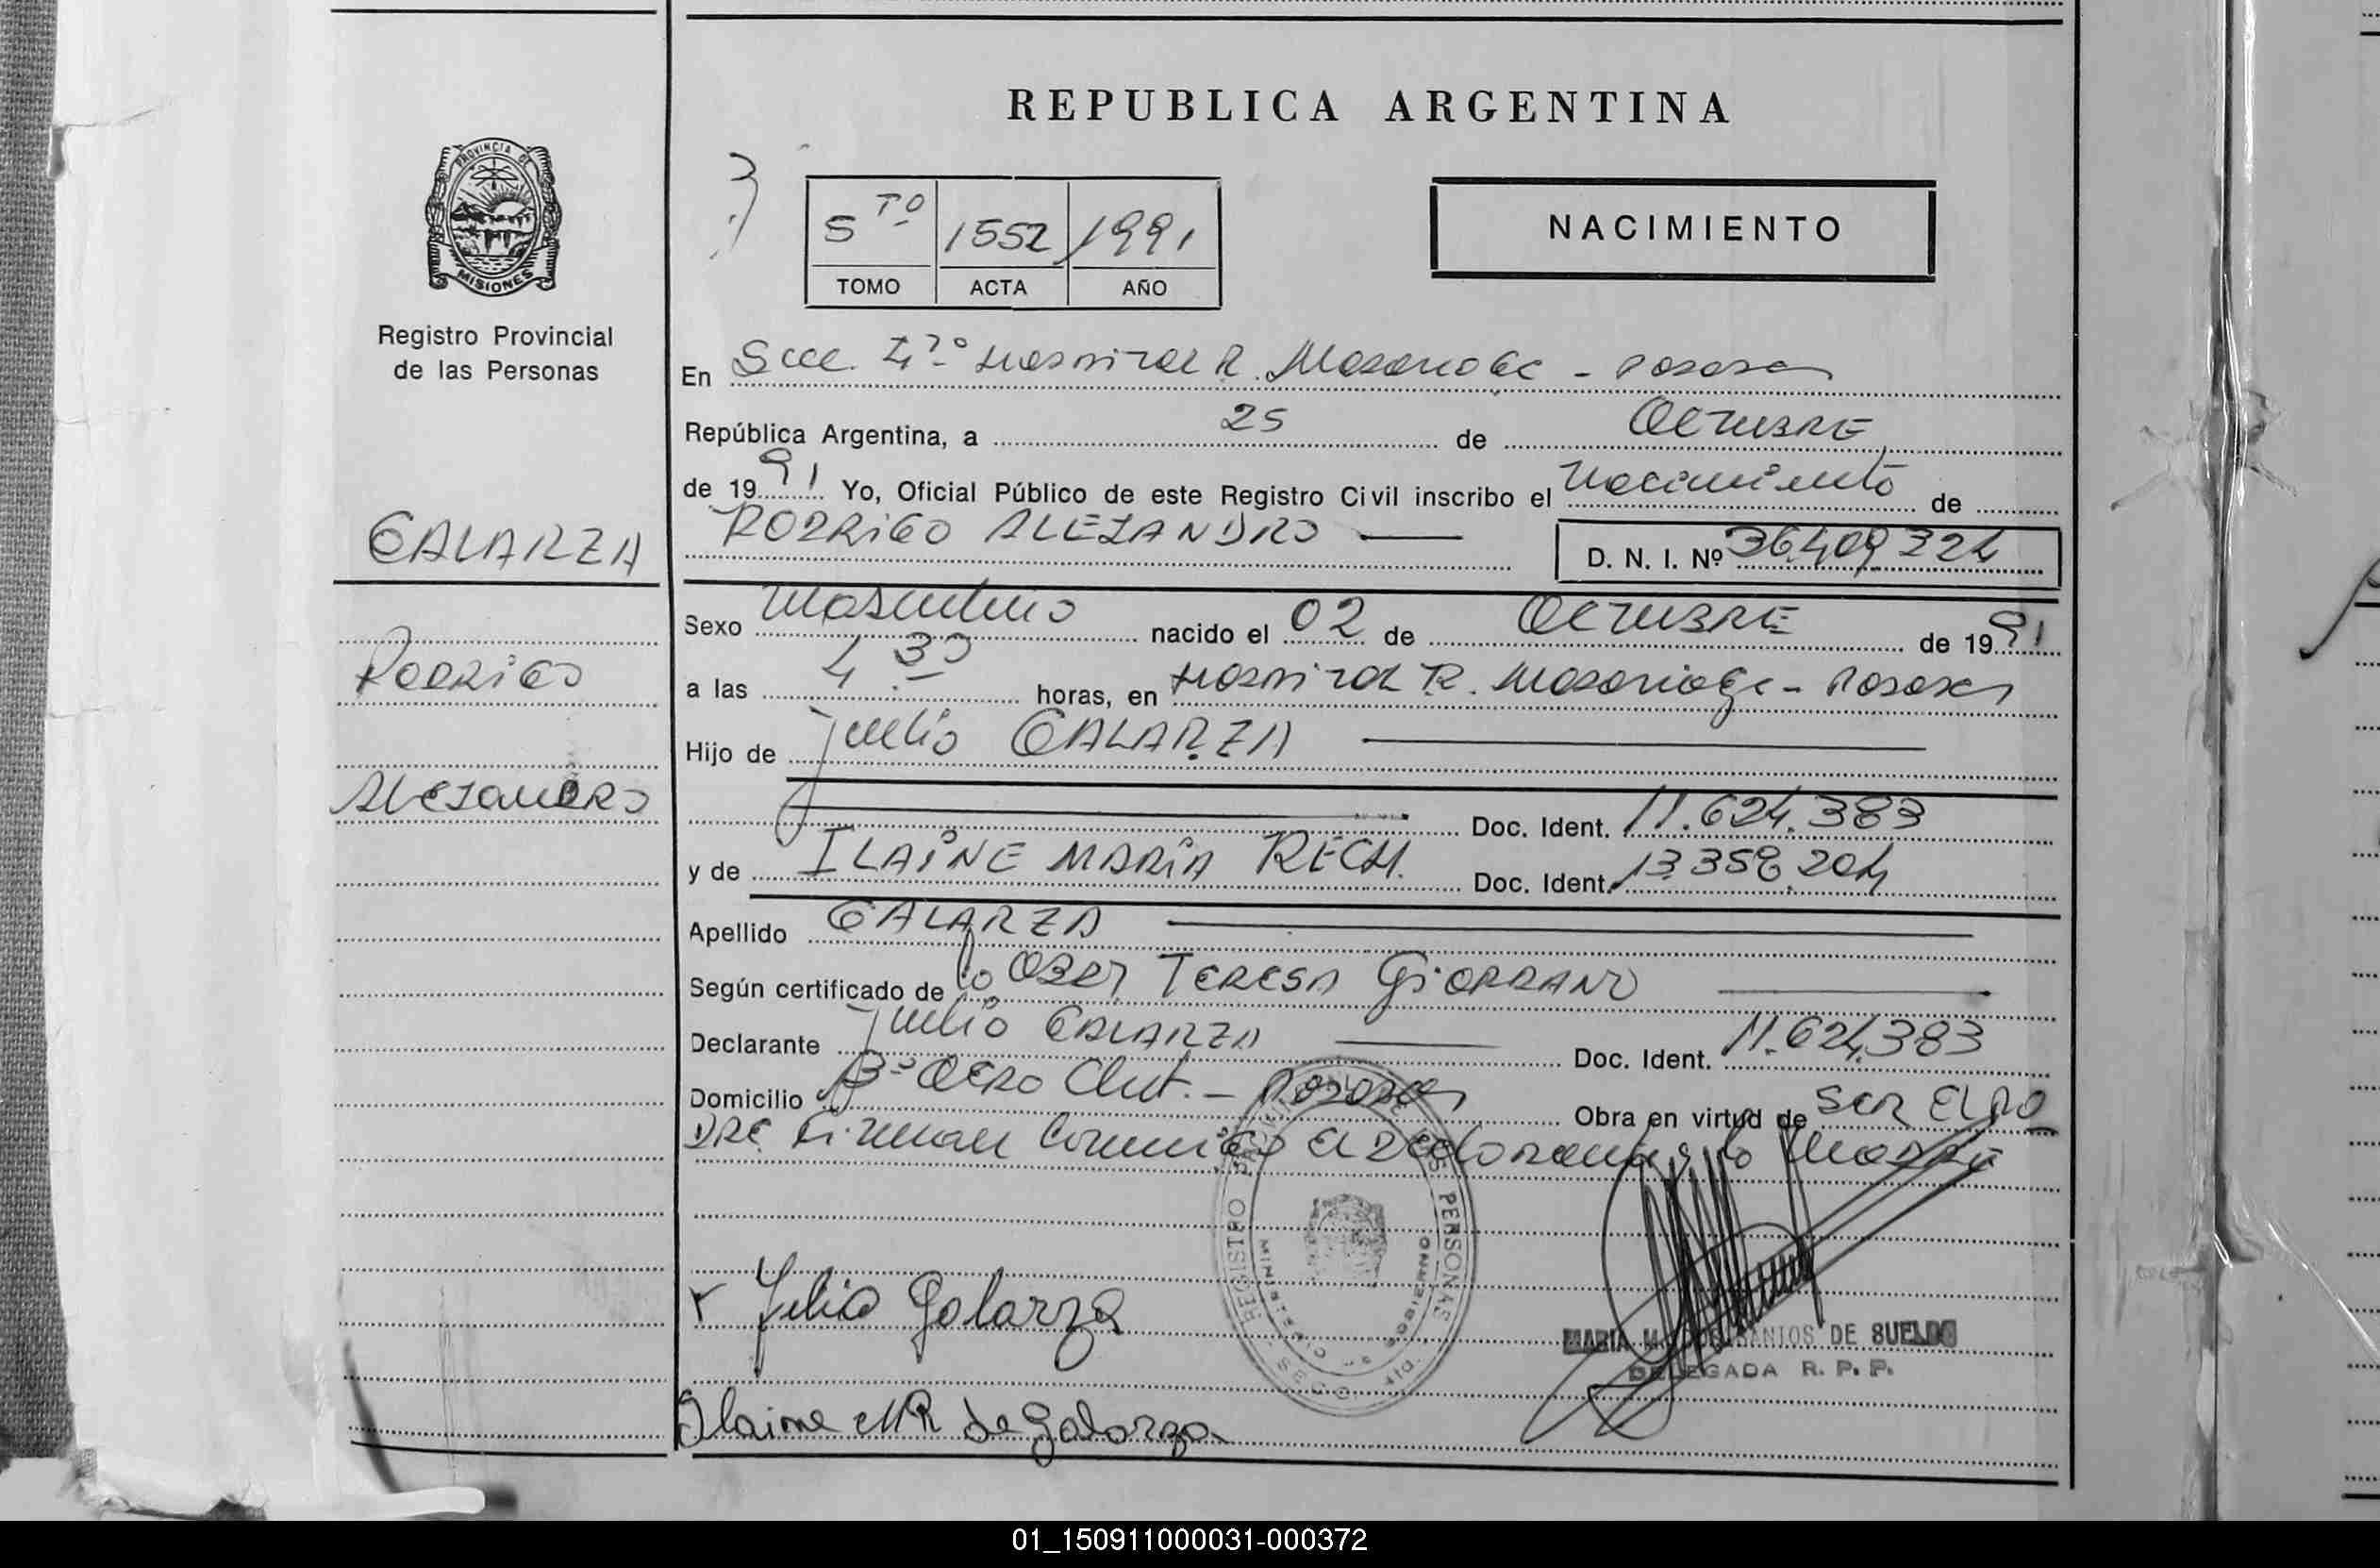 REPUBLICA ARGENTINA
PROVINCIA DE
MISIONES
Registro Provincial
de las Personas
5 TO 1552 1991
TOMO ACTA AÑO
NACIMIENTO
En Secc. 4ta Hospital R. Madariaga - Posadas
República Argentina, a 25 de OCTUBRE
de 1991 Yo, Oficial Público de este Registro Civil inscribo el Nacimiento de
GALARZA
RODRIGO ALEJANDRO
D. N. I. Nº 36.409.324
Sexo Masculino nacido el 02 de OCTUBRE de 1991
Rodrigo
a las 4 30 horas, en Hospital R. Madariaga - Posadas
Hijo de Julio GALARZA
Alejandro
Doc. Ident. 11.624.383
y de ILAINE MARIA RECH. Doc. Ident. 13.358.204
Apellido GALARZA
Según certificado de la OBST TERESA GIORDANO
Declarante Julio GALARZA Doc. Ident. 11.624.383
Domicilio Bº - Posadas Obra en virtud de SER EL PA
DRE Firman el Declarante y la Madre
REGISTRO PERSONAS
MINISTERIO DE GOBIERNO
Julio Galarza
MARIA DOS SANTOS DE SUELDO
DELEGADA R. P. P.
Ilaine MR de Galarza
01_150911000031-000372